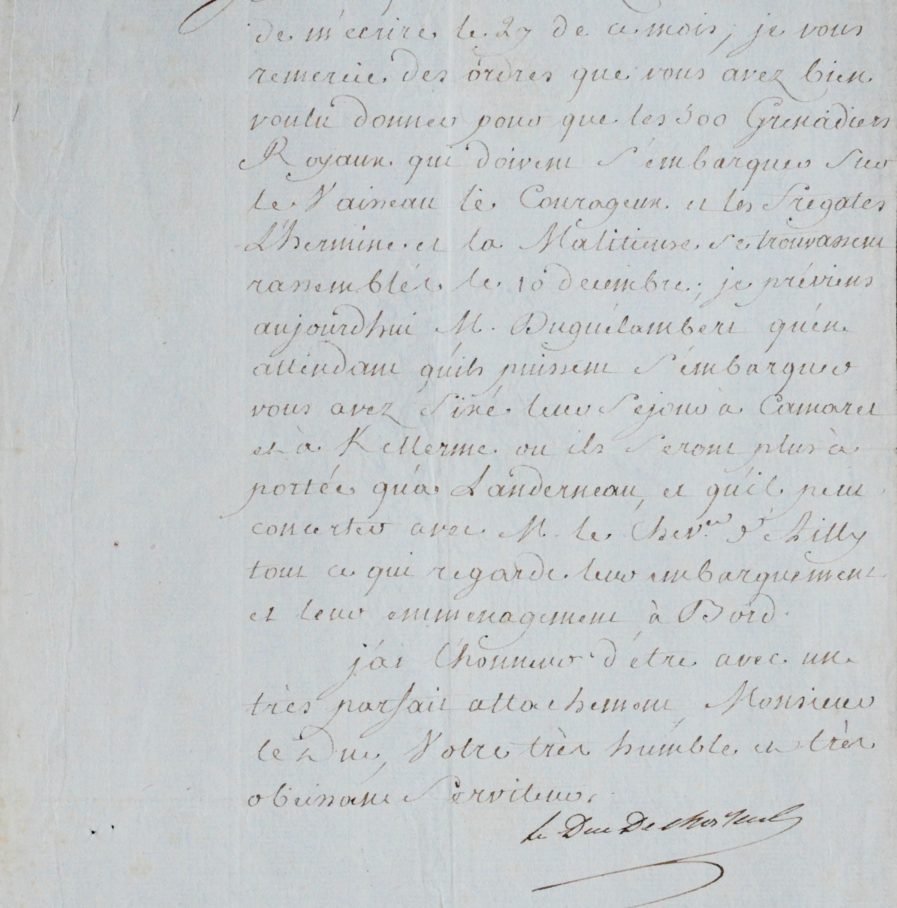 de m'écrire le 27 de ce mois, je vous
remercie des ordres que vous avez bien
voulu donner pour que les 500 Grenadiers
Royaux qui doivent s'embarquer sur
le Vaisseau le Courageux et les Fregates
L'hermine et la Malitieuse se trouvassent
rassemblés le 10 decembre; je préviens
aujourdhui M. Duguélambert qu'en
attendant qu'ils puissent s'embarquer
vous avez fixé leur séjour à Camaret
et à Kellerme ou ils seront plus à
portée qu'à Landerneau, et qu'il peut
concerter avec M. le Chev.er d'Ailly
tout ce qui regarde leur embarquement
et leur emmenagement à Bord.
j'ai l'honneur d'être avec un
très parfait attachement Monsieur
le Duc, Votre très humble et très
obeissant Serviteur.
le Duc De Choiseul